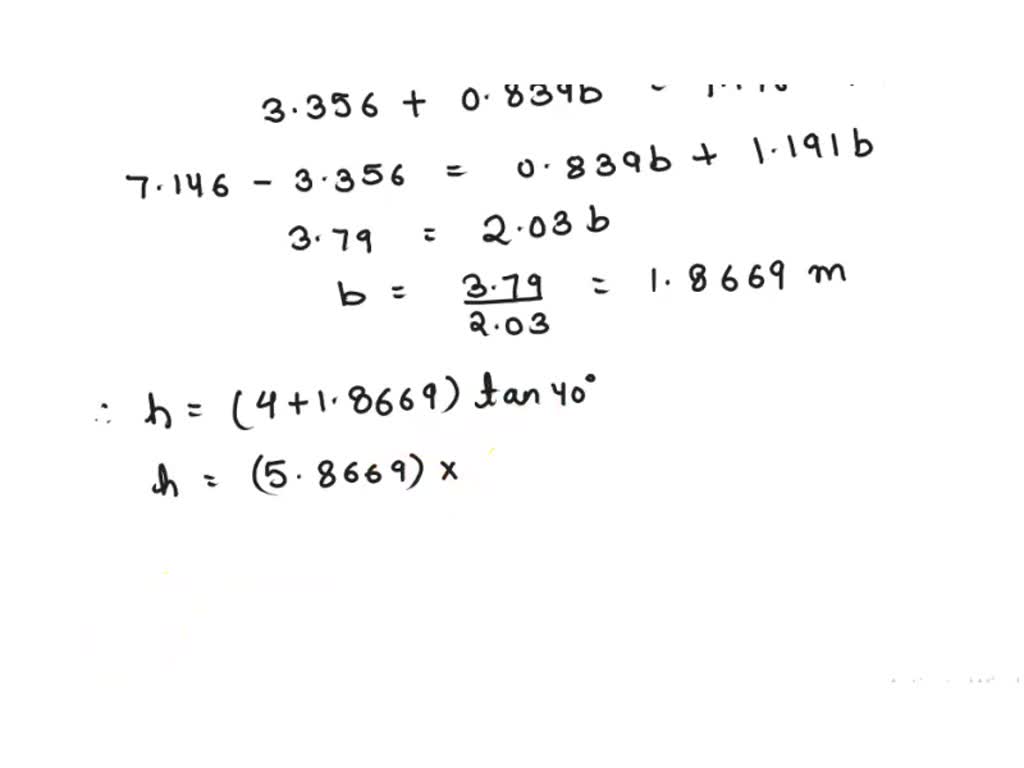 3.356 + 0.839b
7.146 - 3.356 = 0.839b + 1.191b
3.79 = 2.03b
b = 3.79/2.03 = 1.8669 m
∴ h = (4+1.8669) tan 40°
h = (5.8669) ×